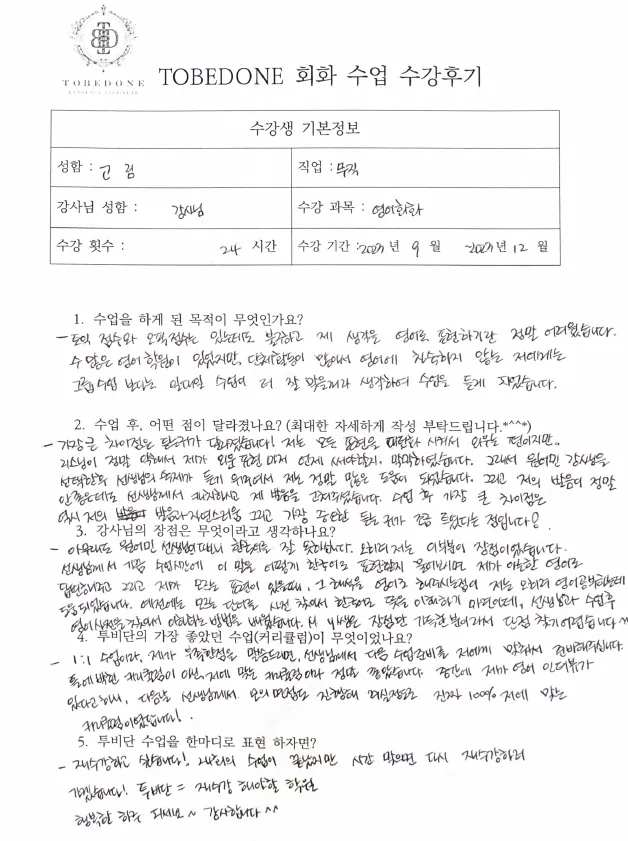 TOBEDONE
TOBEDONE 회화 수업 수강후기
수강생 기본정보
성함 : 고 림
직업 : 무직
강사님 성함 : 강사님
수강 과목 : 영어회화
수강 횟수 : 24 시간
수강 기간 : 2023 년 9 월 ~2023 년 12 월
1. 수업을 하게 된 목적이 무엇인가요?
- 토익 점수와 오픽점수는 있는데도 불구하고 제 생각을 영어로 표현하기란 정말 어려웠습니다.
수 많은 영어 학원이 있었지만, 단체 많아서 영어에 친숙하지 않는 저에게는
그룹수업 보다는 일대일 수업이 더 잘 맞을거라 생각하여 수업을 듣게 되었습니다.
2. 수업 후, 어떤 점이 달라졌나요? (최대한 자세하게 작성 부탁드립니다.*^^*)
- 가장 큰 차이점은 달라졌습니다! 저는 모든 표현을 시켜서 외우는 편이지만..
리스닝이 정말 약해서 제가 외운 표현 마저 언제 써야할지 막막하였습니다. 그래서 원어민 강사님을
선택한후 선생님의 듣기 위주여서 저는 정말 많은 도움이 되었습니다. 그리고 저의 발음이 정말
안 좋은데도 선생님께서 제 발음을 고쳐주셨습니다. 수업 후 가장 큰 차이점은
역시 저의 발음과 자연스러움 그리고 가장 중요한 듣는 귀가 조금 트였다는 점입니다!
3. 강사님의 장점은 무엇이라고 생각하나요?
- 아무래도 원어민 선생님이다보니 한국어를 잘 못하십니다. 오히려 저는 이부분이 장점이였습니다.
선생님께서 가끔 수업시간에 이 말을 어떻게 한국어로 표현할지 물어보시면 제가 아는한 영어로
답변해드리고 그리고 제가 모르는 표현이 있을때, 그 해석을 영어로 해주시는점이 저는 오히려 영어공부하는데
도움되었습니다. 예전에는 모르는 단어를 사전 찾아서 한국어로 뜻을 이해하기 마련인데, 선생님과 수업후
영어사전을 찾아서 이해하는 방법을 배웠습니다. 장점만 가득한 분이라서 단점 찾기 어렵습니다 ^^
4. 투비단의 가장 좋았던 수업(커리큘럼)이 무엇이었나요?
- 1:1 수업이라, 제가 부족한점을 말씀드리면, 선생님께서 다음 수업준비를 저에게 맞춰서 준비해주십니다.
틀에 박힌 커리큘럼이 아닌, 저에 맞는 커리큘럼이라 정말 좋았습니다. 중간에 제가 영어 인터뷰가
있다고하니, 다음날 선생님께서 모의 면접도 진행해 주실정도로 진짜 100% 저에 맞는
커리큘럼이였습니다!
5. 투비단 수업을 한마디로 표현 하자면?
- 재수강하고 싶습니다! 수업이 끝났지만 시간 맞으면 다시 재수강하러
가겠습니다! 투비단 = 재수강 해야할 학원
행복한 하루 되세요 ~ 감사합니다 ^^